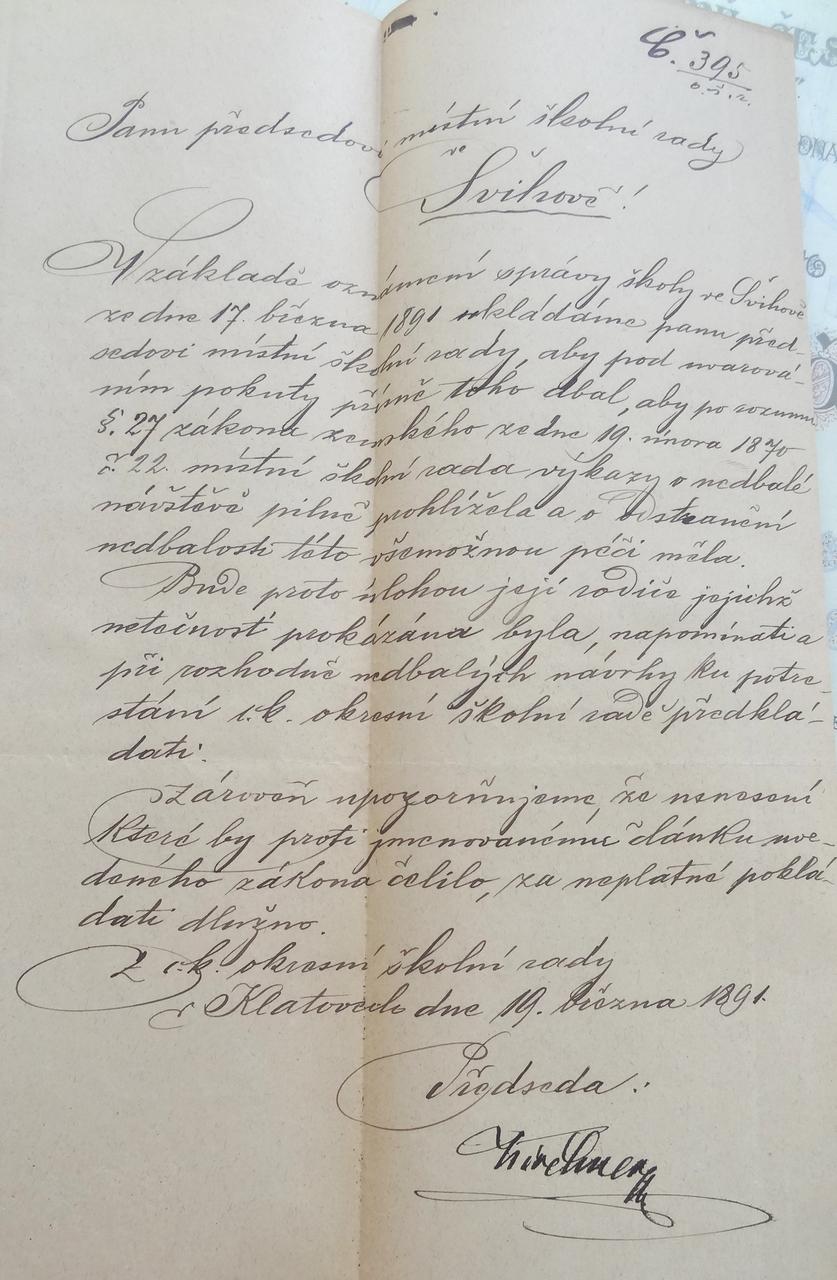 Č. 395
o. š. r.
Panu předsedovi místní školní rady
ve
Švihově!
V základě oznámení správy školy ve Švihově
ze dne 17. března 1891 ukládáme panu před-
sedovi místní školní rady, aby pod uvarová-
ním pokuty přísně toho dbal, aby po rozumu
§. 27 zákona zemského ze dne 19. února 1870
č. 22. místní školní rada výkazy o nedbalé
návštěvě pilně prohlížela a o odstranění
nedbalosti této všemožnou péči měla.
Bude proto úlohou její rodiče jejichž
netečnost prokázána byla, napomínati a
při rozhodně nedbalých návrhy ku potre-
stání c. k. okresní školní radě předklá-
dati.
Zároveň upozorňujeme, že usnesení
které by proti jmenovanému článku uve-
deného zákona čelilo, za neplatné poklá-
dati dlužno.
Z c. k. okresní školní rady
v Klatovech dne 19. března 1891.
Předseda:
Kirchner